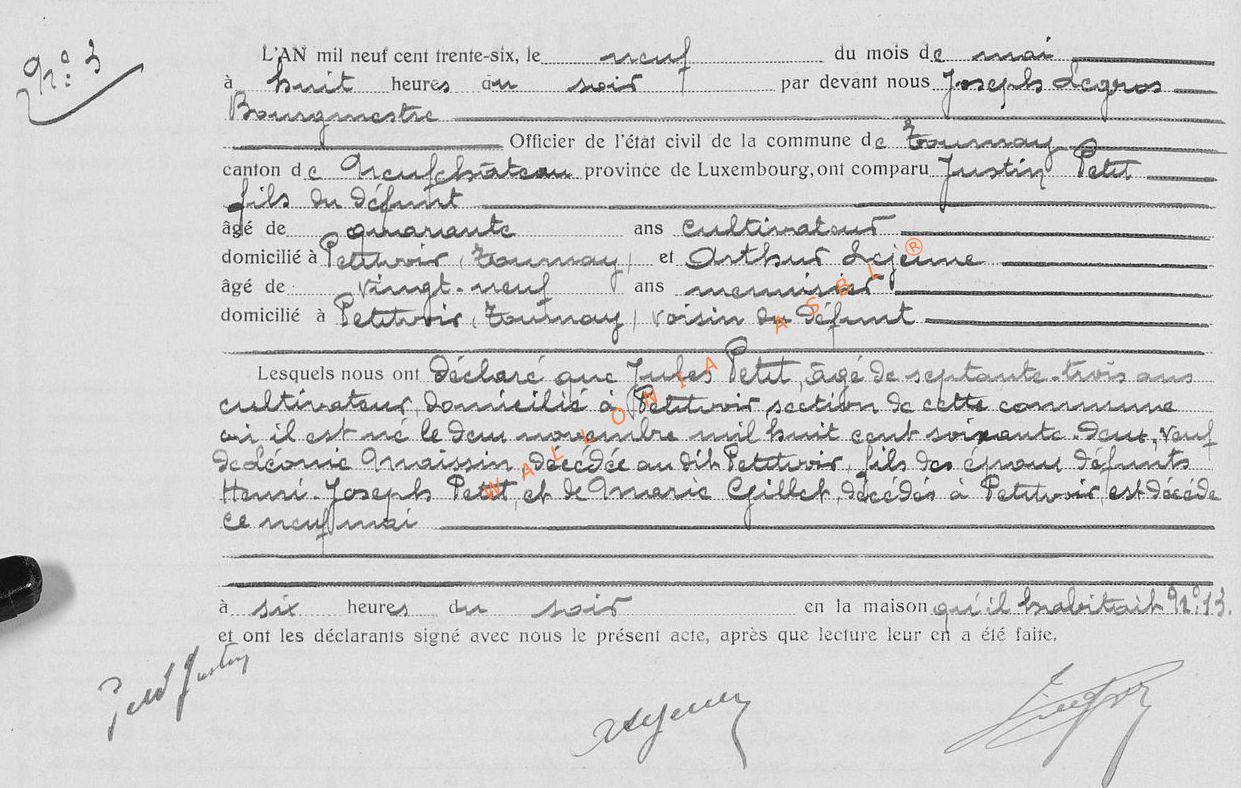 N° 3
L'AN mil neuf cent trente-six, le neuf du mois de mai
à huit heures du soir par devant nous Joseph Legros
Bourgmestre
Officier de l'état civil de la commune de Tournay
canton de Neufchâteau province de Luxembourg, ont comparu Justin Petit
fils du défunt
âgé de quarante ans cultivateur
domicilié à Petitvoir (Tournay) et Arthur Lejeune
âgé de vingt-neuf ans menuisier
domicilié à Petitvoir (Tournay) voisin du défunt
Lesquels nous ont déclaré que Jules Petit, âgé de septante-trois ans
cultivateur, domicilié à Petitvoir, section de cette commune
où il est né le deux novembre mil huit cent soixante-deux, veuf
de Léonie Maissin, décédée au dit Petitvoir, fils des époux défunts
Henri-Joseph Petit, et de Marie Gillet, décédés à Petitvoir, est décédé
ce neuf mai
à six heures du soir en la maison qu'il habitait N° 13.
et ont les déclarants signé avec nous le présent acte, après que lecture leur en a été faite.
Petit Justin
A Lejeune
WALLONIA ASBL ®